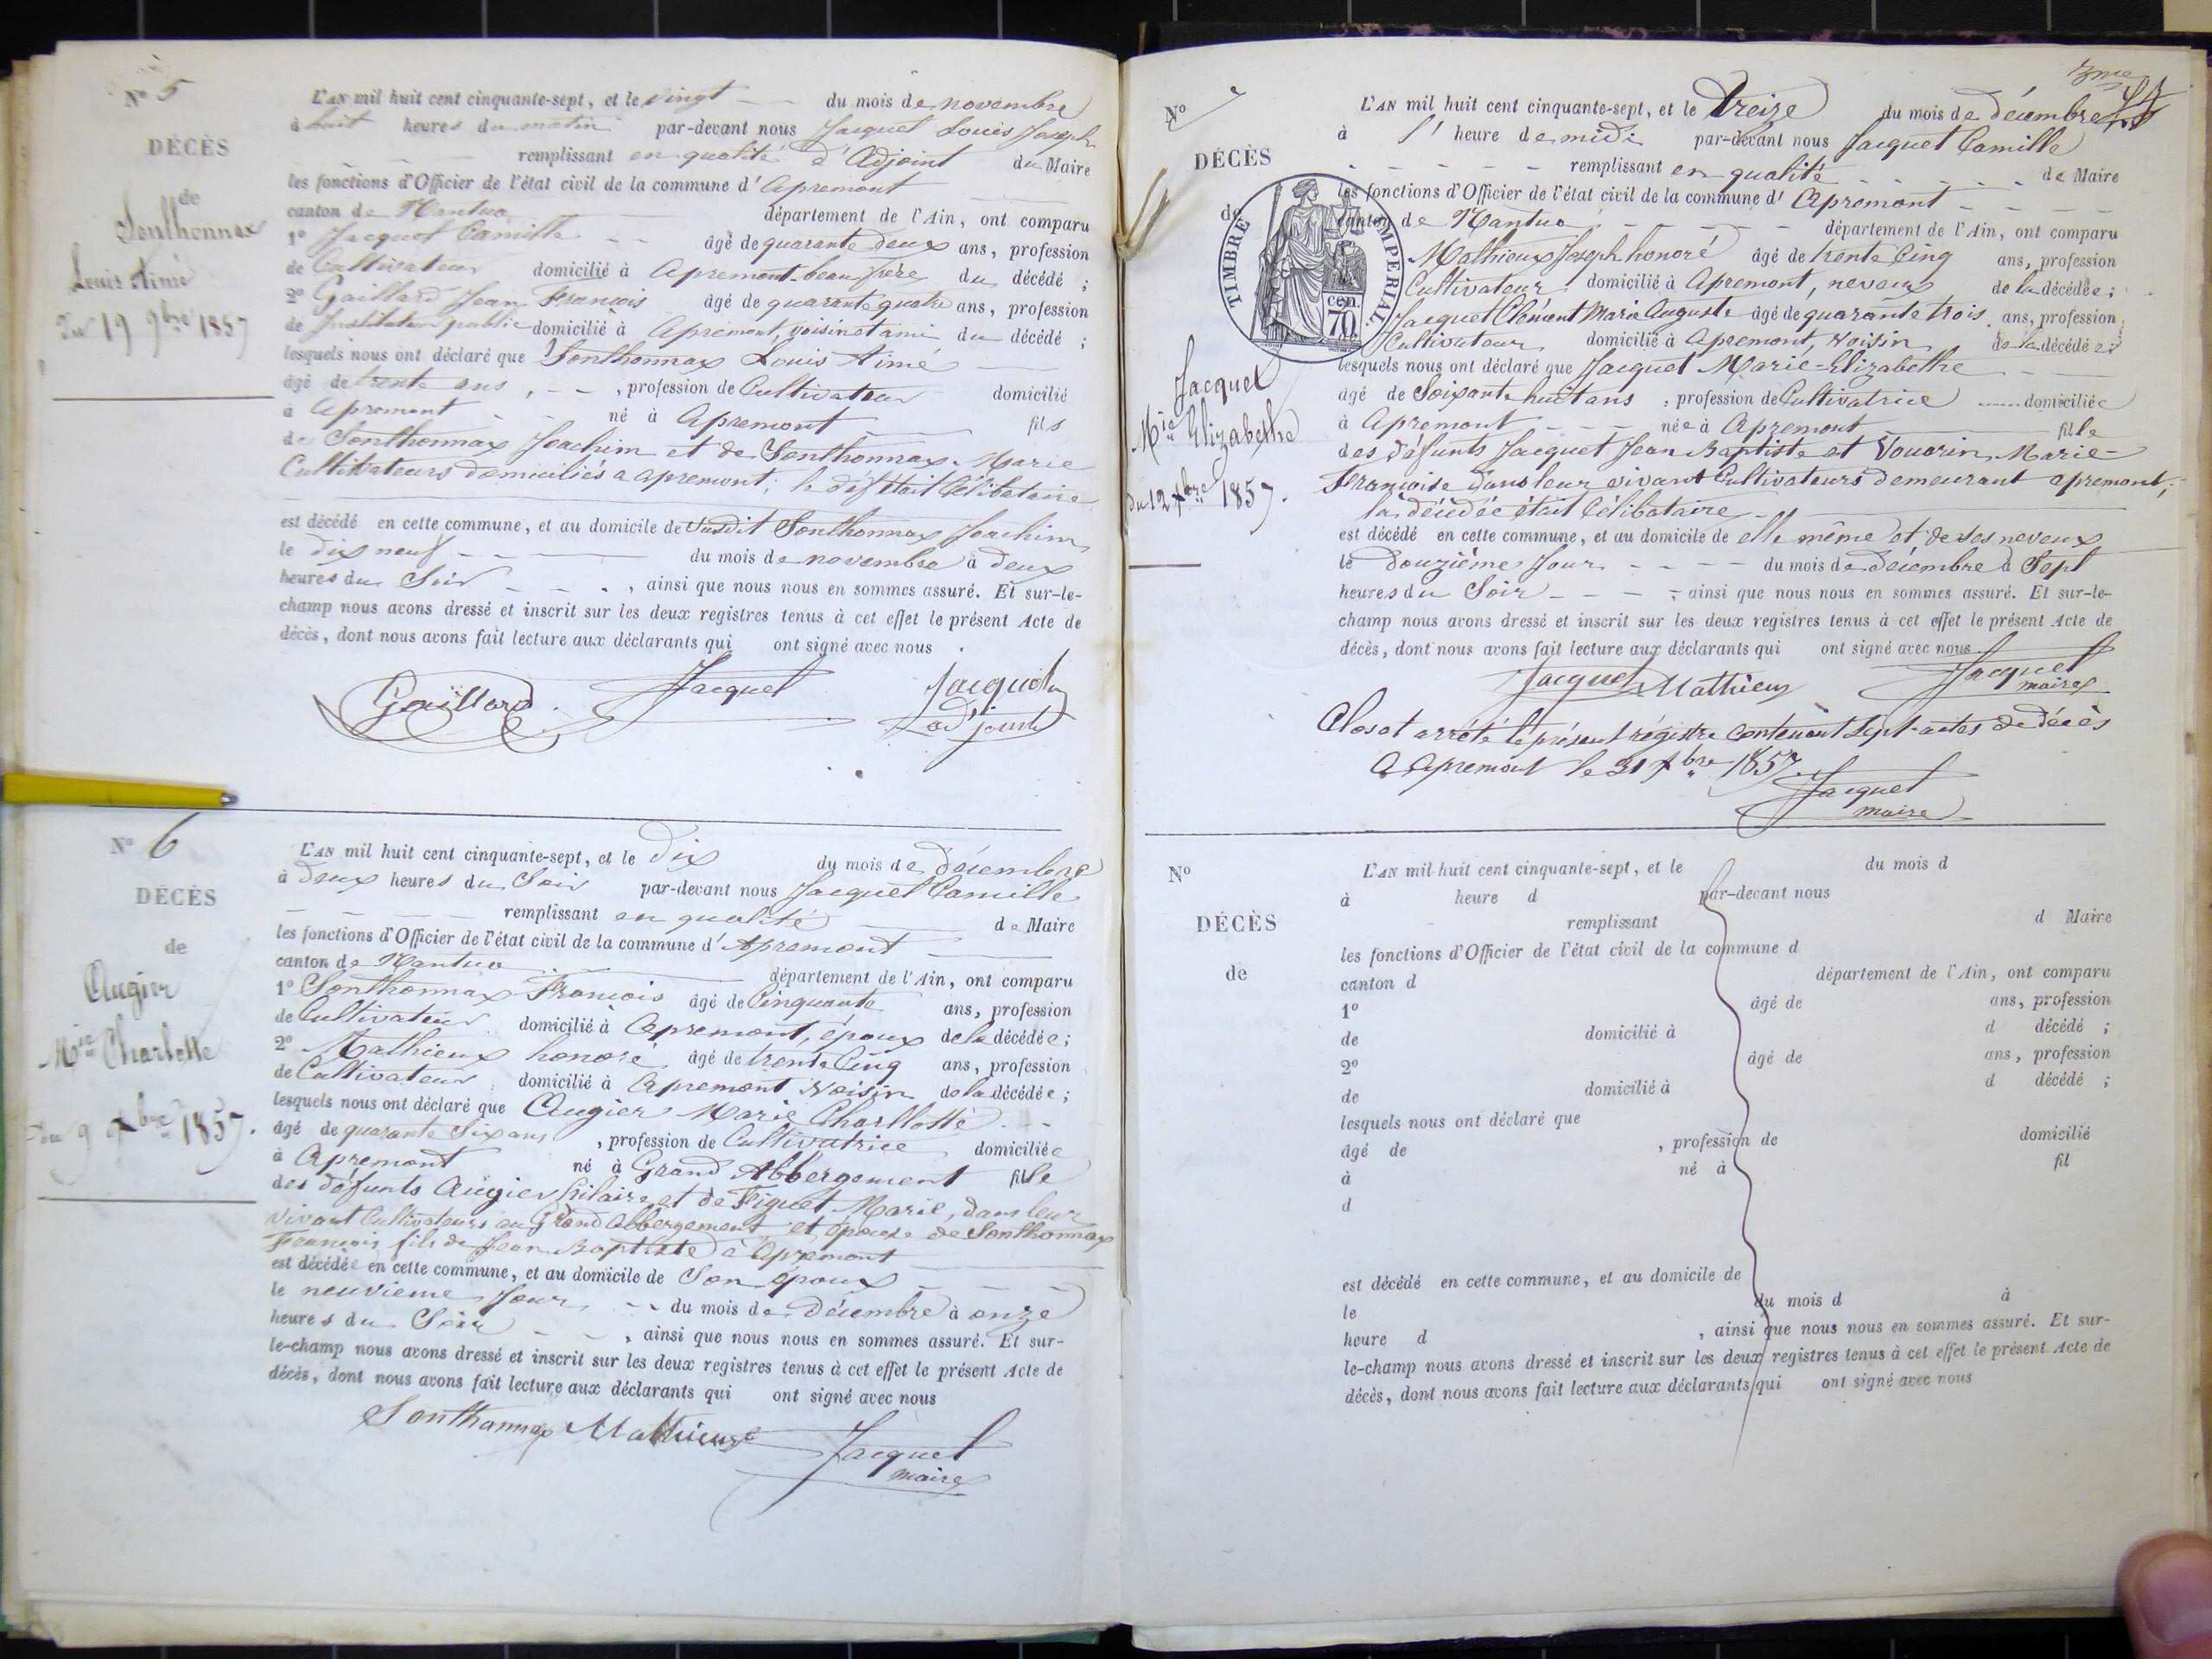 Nº 5
DÉCÈS
de
Sonthonnax
Louis Aimé
Du 19 9bre 1857
L'AN mil huit cent cinquante-sept, et le vingt du mois de novembre
à huit heures du matin par-devant nous Jacquet Louis Joseph
remplissant en qualité d'Adjoint du Maire
les fonctions d'Officier de l'état civil de la commune d'Apremont
canton de Nantua département de l'Ain, ont comparu
1º Jacquet Camille âgé de quarante deux ans, profession
de Cultivateur domicilié à Apremont beau frère du décédé ;
2º Gaillard Jean François âgé de quarante quatre ans, profession
de Instituteur public domicilié à Apremont, voisin et ami du décédé ;
lesquels nous ont déclaré que Sonthonnax Louis Aimé
âgé de trente ans, profession de Cultivateur domicilié
à Apremont né à Apremont fils
de Sonthonnax Joachim et de Sonthonnax Marie
Cultivateurs domiciliés a apremont ; le déft était Célibataire
est décédé en cette commune, et au domicile de susdit Sonthonnax Joachim
le dix neuf du mois de novembre à deux
heures du Soir, ainsi que nous nous en sommes assuré. Et sur-le-
champ nous avons dressé et inscrit sur les deux registres tenus à cet effet le présent Acte de
décès, dont nous avons fait lecture aux déclarants qui ont signé avec nous.
Gaillard Jacquet Jacquet
adjoint
Nº 6
DÉCÈS
de
Augier
Mie Charlotte
Du 9 Xbre 1857.
L'AN mil huit cent cinquante-sept, et le Dix du mois de Décembre
à Deux heures du Soir par-devant nous Jacquet Camille
remplissant en qualité de Maire
les fonctions d'Officier de l'état civil de la commune d'Apremont
canton de Nantua département de l'Ain, ont comparu
1º Sonthonnax François âgé de Cinquante ans, profession
de Cultivateur domicilié à Apremont, époux de la décédée ;
2º Mathieux honoré âgé de trente Cinq ans, profession
de Cultivateur domicilié à Apremont Voisin de la décédée ;
lesquels nous ont déclaré que Augier Marie Charllotte
âgé de quarante Six ans, profession de Cultivatrice domiciliée
à Apremont né à Grand Abbergement fille
des défunts Augier hilaire et de Figuet Marie, dans leur
vivant Cultivateurs au Grand Abbergement et épouse de Sonthonnax
François fils de Jean Baptiste à Apremont
est décédée en cette commune, et au domicile de Son époux
le neuvième Jour du mois de Décembre à onze
heures du Soir, ainsi que nous nous en sommes assuré. Et sur-
le-champ nous avons dressé et inscrit sur les deux registres tenus à cet effet le présent Acte de
décès, dont nous avons fait lecture aux déclarants qui ont signé avec nous
Sonthonnax Mathieux Jacquet
maire
3me
Nº 7
DÉCÈS
de
Jacquet
Mie Elizabethe
du 12 Xbre 1857.
TIMBRE IMPERIAL
70 cen.
L'AN mil huit cent cinquante-sept, et le treize du mois de décembre
à l' heure de midi par-devant nous Jacquet Camille
remplissant en qualité de Maire
les fonctions d'Officier de l'état civil de la commune d'Apremont
canton de Nantua département de l'Ain, ont comparu
Mathieux Joseph honoré âgé de trente Cinq ans, profession
Cultivateur domicilié à Apremont, neveux de la décédée ;
Jacquet Clément Marie Auguste âgé de quarante trois ans, profession
Cultivateur domicilié à Apremont, Voisin de la décédée ;
lesquels nous ont déclaré que Jacquet Marie-Elizabethe
âgé de Soixante huit ans, profession de Cultivatrice domiciliée
à Apremont née à Apremont fille
des défunts Jacquet Jean Baptiste et Vouarin Marie-
Françoise dans leur vivant Cultivateurs demeurant apremont,
la décédée était Célibataire
est décédé en cette commune, et au domicile de elle même et de ses neveux
le Douzième Jour du mois de Décembre à Sept
heures du Soir, ainsi que nous nous en sommes assuré. Et sur-le-
champ nous avons dressé et inscrit sur les deux registres tenus à cet effet le présent Acte de
décès, dont nous avons fait lecture aux déclarants qui ont signé avec nous
Jacquet Mathieux Jacquet
maire
Clos et arrêté le présent régistre contenant Sept actes de décès
A Apremont le 31 Xbre 1857.
Jacquet
maire
Nº
DÉCÈS
de
L'AN mil huit cent cinquante-sept, et le du mois d
à heure d par-devant nous
remplissant d Maire
les fonctions d'Officier de l'état civil de la commune d
canton d département de l'Ain, ont comparu
1º âgé de ans, profession
de domicilié à d décédé ;
2º âgé de ans, profession
de domicilié à d décédé ;
lesquels nous ont déclaré que
âgé de , profession de domicilié
à né à fil
d
est décédé en cette commune, et au domicile de
le du mois d à
heure d , ainsi que nous nous en sommes assuré. Et sur-
le-champ nous avons dressé et inscrit sur les deux registres tenus à cet effet le présent Acte de
décès, dont nous avons fait lecture aux déclarants qui ont signé avec nous